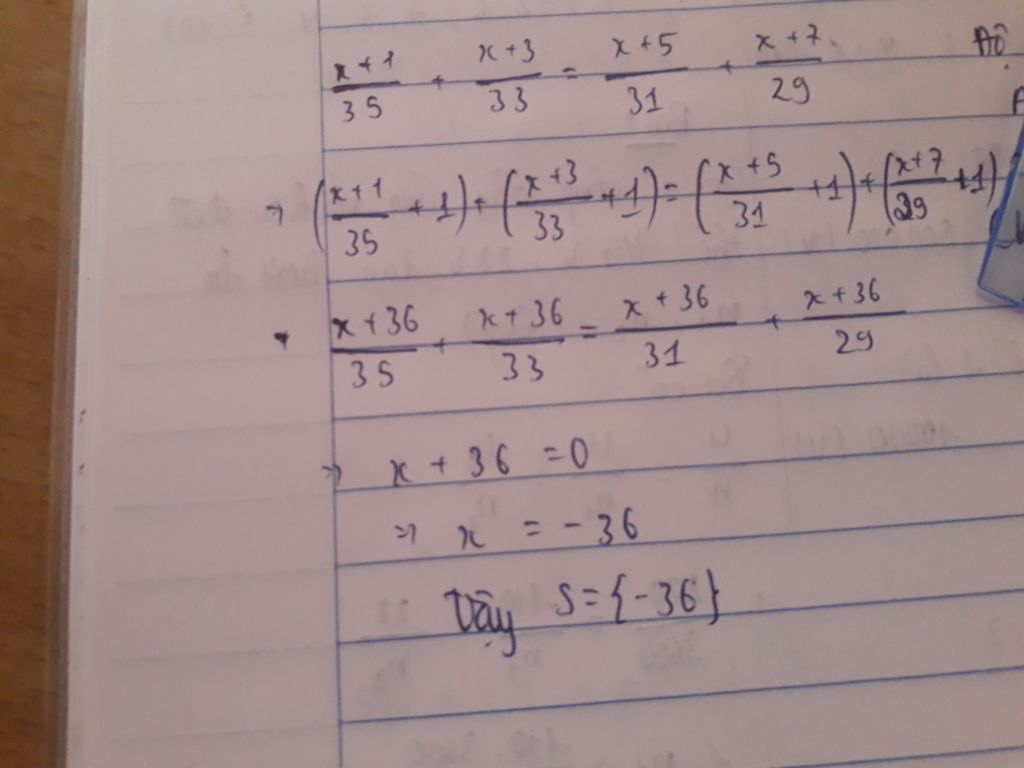 x+1/35 + x+3/33 = x+5/31 + x+7/29
=> (x+1/35 + 1) + (x+3/33 + 1) = (x+5/31 + 1) + (x+7/29 + 1)
x+36/35 + x+36/33 = x+36/31 + x+36/29
=> x + 36 = 0
=> x = -36
Vậy S = {-36}